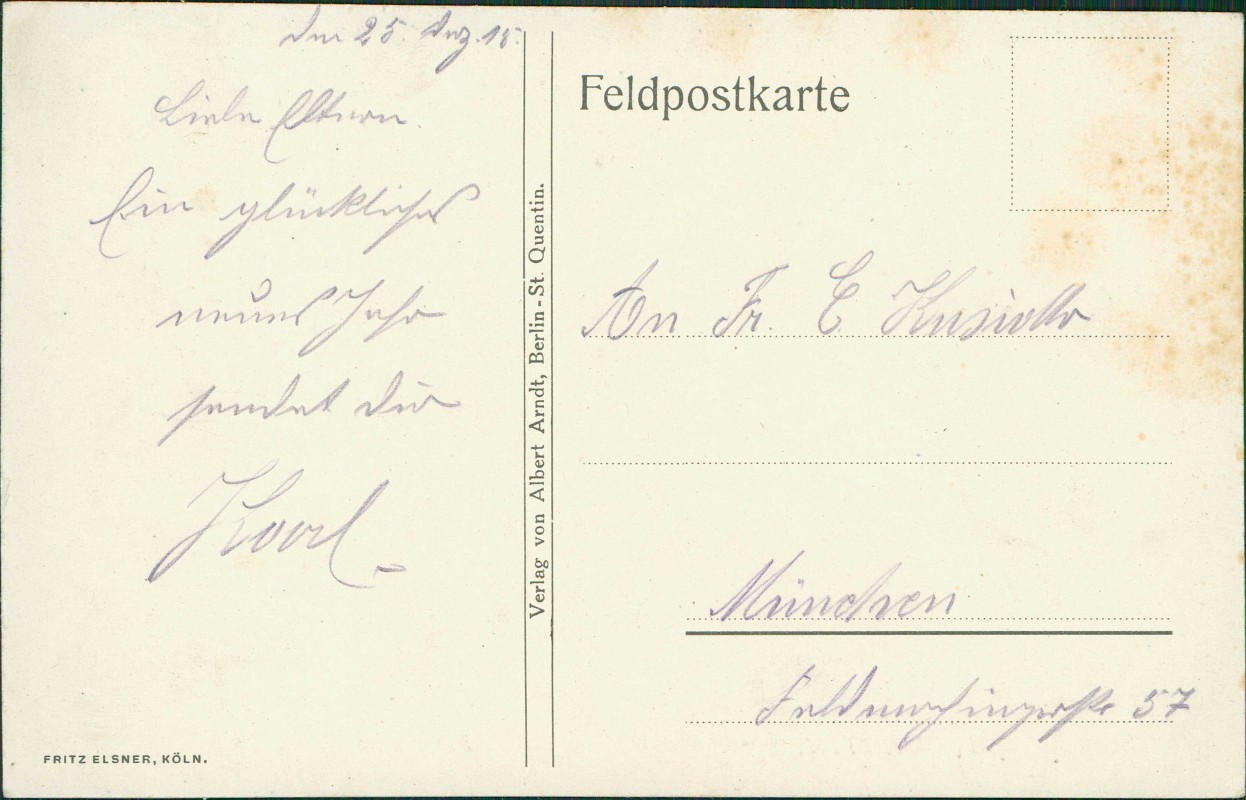 den 25. Dez. 15.
Liebe Eltern.
Ein glückliches
neues Jahr
sendet dir
Karl
Verlag von Albert Arndt, Berlin-St. Quentin.
FRITZ ELSNER, KÖLN.
Feldpostkarte
An Fr. C.
München
Feldmochingerstr 57